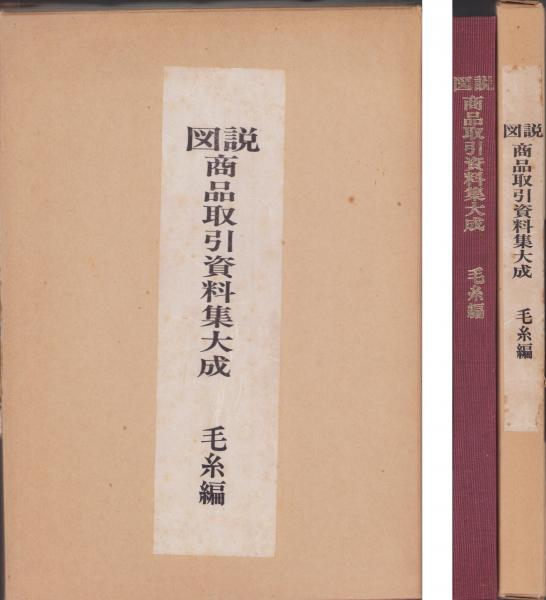 図説
商品取引資料集大成
毛糸編
図説
商品取引資料集大成
毛糸編
図説
商品取引資料集大成
毛糸編